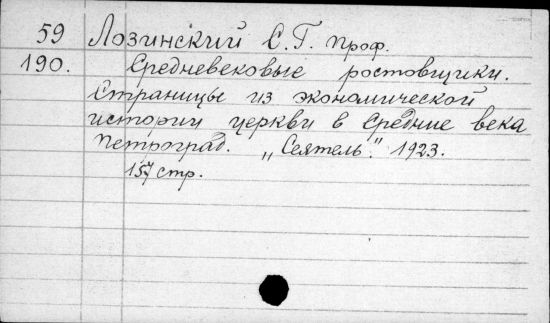 59 Лозинский С. Г. проф.
190. Средневековые ростовщики.
Страницы из экономической
истории церкви в Средние века
Петроград. „Сеятель". 1923.
157 стр.